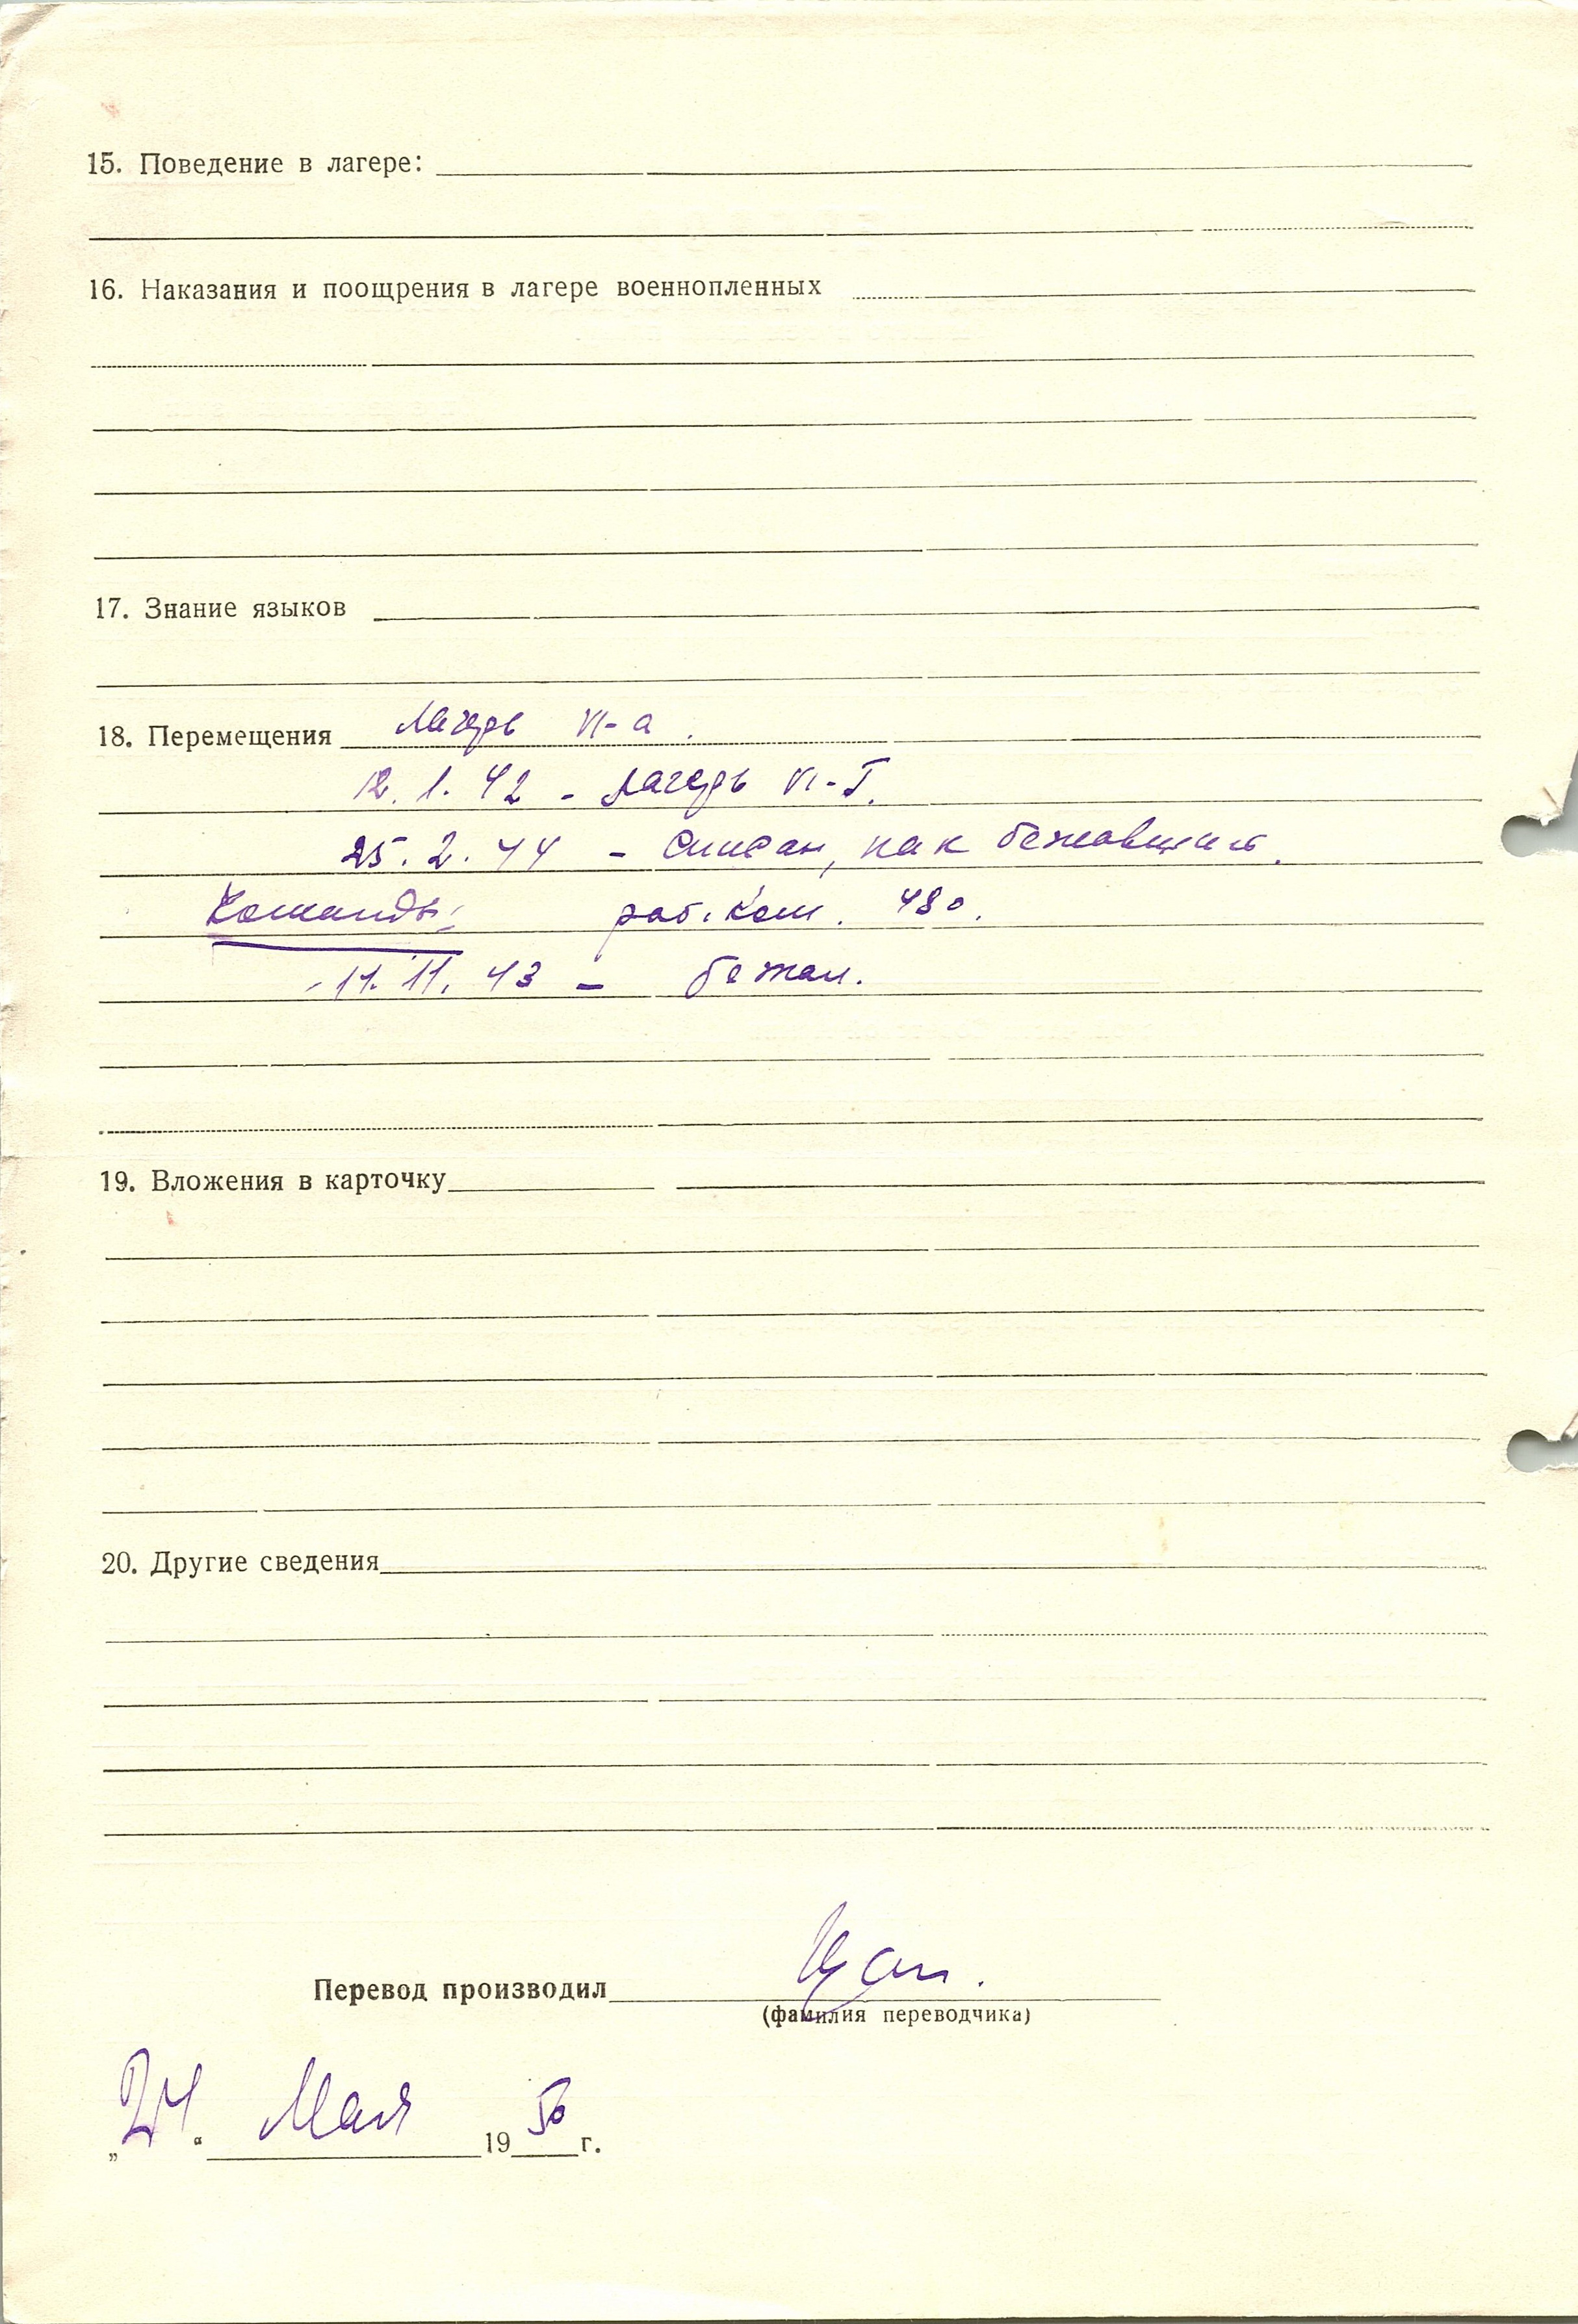 15. Поведение в лагере:
16. Наказания и поощрения в лагере военнопленных
17. Знание языков
18. Перемещения Лагерь VI-а.
12.1.42 - лагерь VI-Г.
25.2.44 - Списан, как бежавший.
Команды: раб. ком. 480.
11.11.43 - бежал.
19. Вложения в карточку
20. Другие сведения
Перевод производил
(фамилия переводчика)
„24“ Мая 1950 г.